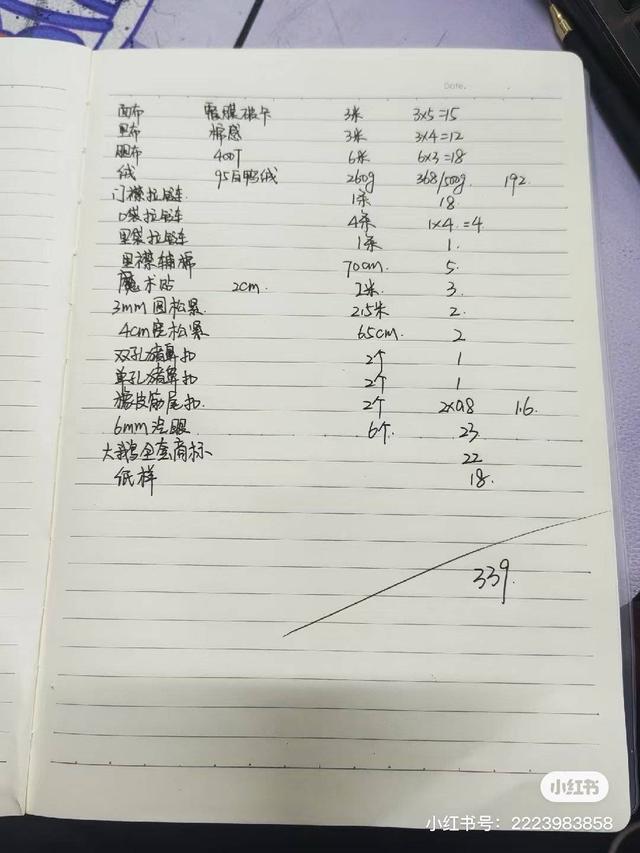 Date.
面布 覆膜梭卡 3米 3×5=15
里布 棉感 3米 3×4=12
胆布 400T 6米 6×3=18
绒 95白鸭绒 260g 368/500g 192
门襟拉链 1条 18
口袋拉链 4条 1×4=4
里袋拉链 1条 1.
里襟辅棉 70cm. 5.
魔术贴 2cm. 1米 3.
3mm圆松紧 2.5米 2.
4cm宽松紧 65cm. 2
双孔猪鼻扣 2个 1
单孔猪鼻扣 2个 1
橡皮筋尾扣. 2个 2×0.8 1.6.
6mm汽眼 6个. 23
大鹅全套商标 22
纸样 18.
339.
小红书
小红书号：2223983858